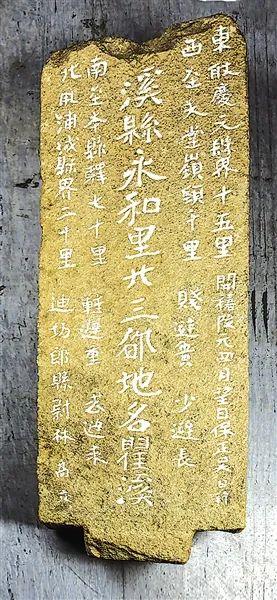 東取慶元縣界十五里 開禧改元四月望日保正吳
西至天堂嶺頭十里 賤避貴 少避長
溪縣永和里廿三都地名瞿溪
南至本縣驛七十里 輕避重 去避來
北取浦城縣界二十里 迪功郎縣尉林高立